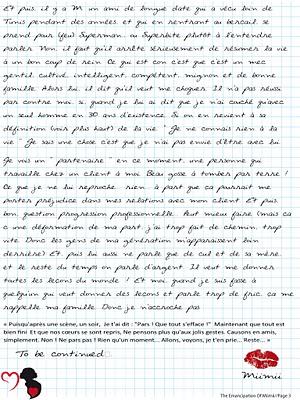 Et puis, il y a M un ami de longue date qui a vécu loin de
Tunis pendant des années et qui en rentrant au bercail se
prend pour Yed Superman, ou Superbête plutôt à l'entendre
parler. Non, il faut qu'il arrête sérieusement de résumer la vie
à un bon coup de rein. Ce qui est con c'est que c'est un mec
gentil, cultivé, intelligent, compétent, mignon et de bonne
famille. Alors lui, il dit qu'il veut me choquer. Il n'a pas réussi
par contre moi, si, quand je lui ai dit que je n'ai couché qu'avec
un seul homme en 30 ans d'existence. Si on en revient à sa
définition (voir plus haut) de la vie " Je ne connais rien à la
vie ". Je sais une chose c'est que je n'ai pas envie d'être avec lui.
Je vois un " partenaire " en ce moment, une personne qui
travaille chez un client à moi. Beau gosse à tomber par terre !
Ce que je ne lui reproche rien, à part que ça pourrait me
porter préjudice dans mes relations avec mon client. Et puis,
bon, question progression professionnelle... Peut mieux faire (mais ça
c une déformation de ma part, j'ai trop fait de chemin, trop
vite. Donc les gens de ma génération m'apparaissent loin
derrière). Et puis lui aussi ne parle que de cul et de sa mère...
et le reste du temps on parle d'argent. Il veut me donner
toutes les leçons du monde ! Et moi, quand je suis face à
quelqu'un qui veut donner des leçons et parle trop de fric, ça me
rappelle ma famille. Donc je n'accroche pas.
« Puisqu'après une scène, un soir, Je t'ai dit : "Pars ! Que tout s'efface !" Maintenant que tout est
bien fini Et que nos cœurs se sont repris, Ne pensons plus qu'aux jolis gestes. Causons en amis,
simplement. Non ! Ne pars pas ! Rien qu'un moment... Allons, voyons, je t'en prie... Reste... »
To be continued...
Miimii
The Emancipation Of Miimii/ Page 3